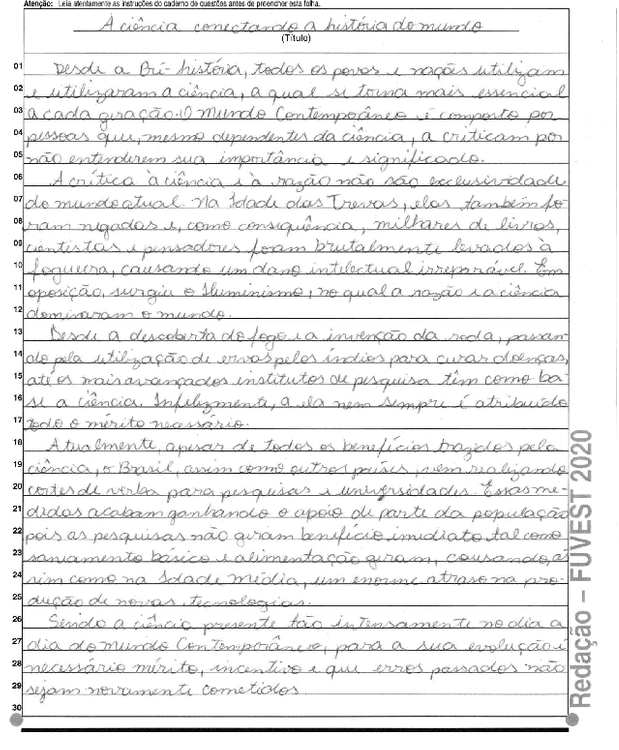 Atenção: Leia atentamente as instruções do caderno de questões antes de preencher esta folha.
A ciência conectando a história do mundo
(Título)
01 Desde a Pré-história, todos os povos e nações utilizam
02 e utilizaram a ciência, a qual se torna mais essencial
03 a cada geração. O mundo Contemporâneo é composto por
04 pessoas que, mesmo dependentes da ciência, a criticam por
05 não entenderem sua importância e significado.
06 A crítica à ciência e à razão não são exclusividade
07 do mundo atual. Na Idade das Trevas, elas também fo-
08 ram negadas e, como consequência, milhares de livros,
09 cientistas e pensadores foram brutalmente levados à
10 fogueira, causando um dano intelectual irreparável. Em
11 oposição, surgiu o Iluminismo, no qual a razão e a ciência
12 dominaram o mundo.
13 Desde a descoberta do fogo e a invenção da roda, passan-
14 do pela utilização de ervas pelos índios para curar doenças,
15 até os mais avançados institutos de pesquisa têm como ba-
16 se a ciência. Infelizmente, a ela nem sempre é atribuído
17 todo o mérito necessário.
18 Atualmente, apesar de todos os benefícios trazidos pela
19 ciência, o Brasil, assim como outros países, vem realizando
20 cortes de verba para pesquisas e universidades. Essas me-
21 didas acabam ganhando o apoio de parte da população
22 pois as pesquisas não geram benefício imediato tal como
23 saneamento básico e alimentação geram, causando, as-
24 sim como na Idade média, um enorme atraso na pro-
25 dução de novas tecnologias.
26 Sendo a ciência presente tão intensamente no dia a
27 dia do mundo Contemporâneo, para a sua evolução é
28 necessário mérito, incentivo e que erros passados não
29 sejam novamente cometidos
30
Redação – FUVEST 2020